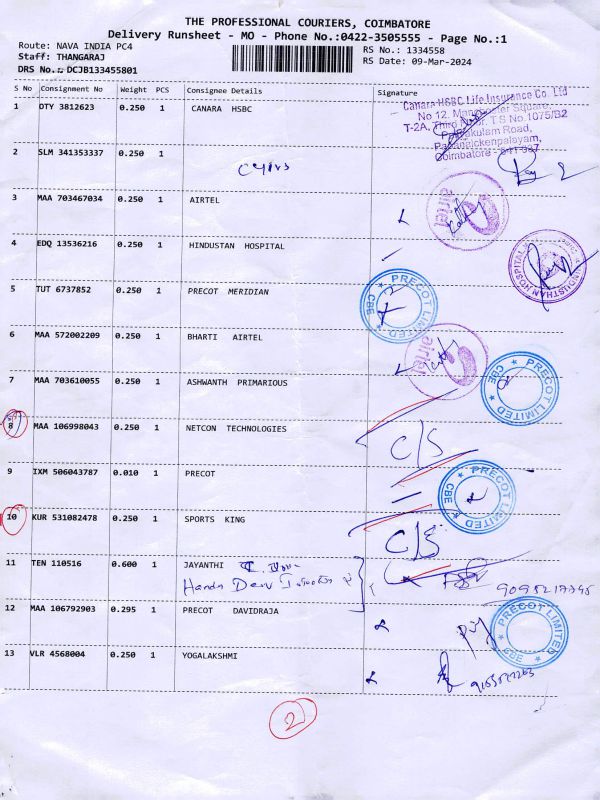 THE PROFESSIONAL COURIERS, COIMBATORE
Delivery Runsheet - MO - Phone No.:0422-3505555 - Page No.:1
Route: NAVA INDIA PC4
RS No.: 1334558
Staff: THANGARAJ
RS Date: 09-Mar-2024
DRS No.: DCJB133455801
S No Consignment No Weight PCS Consignee Details Signature
1 DTY 3812623 0.250 1 CANARA HSBC
Canara HSBC Life Insurance Co. Ltd
No 12, Manchester Square,
T-2A, Third Floor, T.S No.1075/B2
Puliakulam Road,
Pappanaickenpalayam,
Coimbatore - 641 037
2 SLM 341353337 0.250 1
3 MAA 703467034 0.250 1 AIRTEL
airtel
4 EDQ 13536216 0.250 1 HINDUSTAN HOSPITAL
HINDUSTHAN HOSPITAL
5 TUT 6737852 0.250 1 PRECOT MERIDIAN
PRECOT LIMITED CBE
6 MAA 572002209 0.250 1 BHARTI AIRTEL
airtel
7 MAA 703610055 0.250 1 ASHWANTH PRIMARIOUS
PRECOT LIMITED CBE
8 MAA 106998043 0.250 1 NETCON TECHNOLOGIES
C/S
9 IXM 506043787 0.010 1 PRECOT
PRECOT LIMITED CBE
10 KUR 531082478 0.250 1 SPORTS KING
C/S
11 TEN 110516 0.600 1 JAYANTHI
12 MAA 106792903 0.295 1 PRECOT DAVIDRAJA
PRECOT LIMITED CBE
13 VLR 4568004 0.250 1 YOGALAKSHMI
2